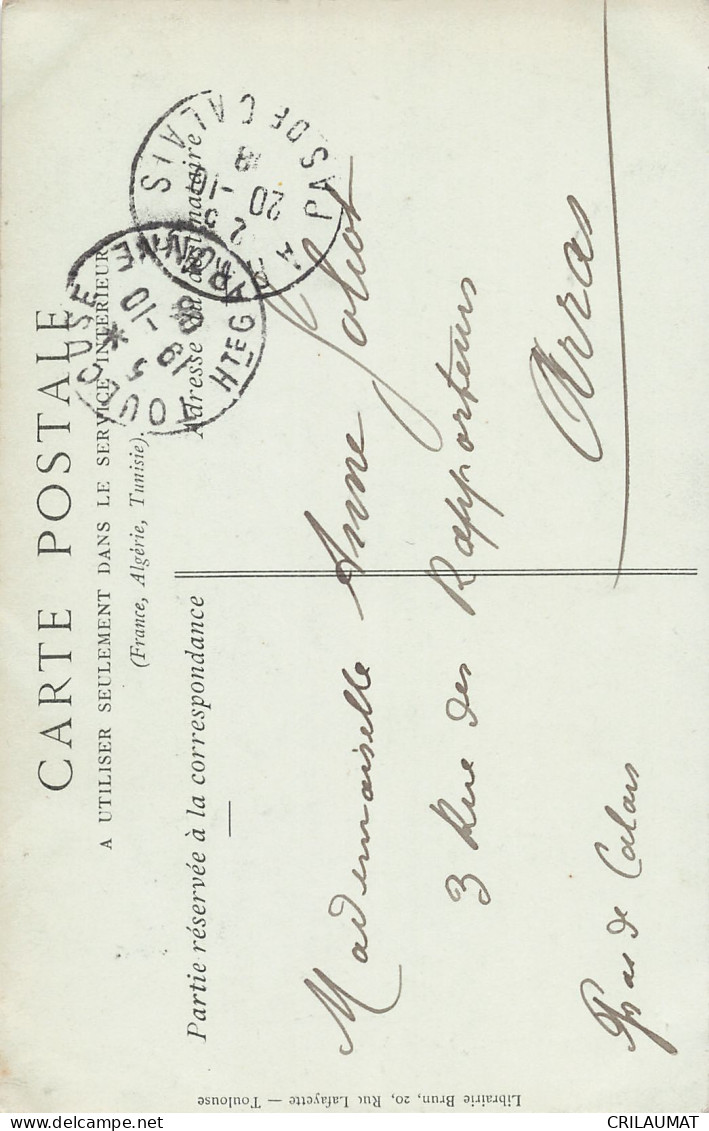 CARTE POSTALE
A UTILISER SEULEMENT DANS LE SERVICE INTERIEUR
(France, Algérie, Tunisie).
Partie réservée à la correspondance
Adresse du destinataire
TOULOUSE
HTE GARONNE
19
5 -10
08
ARRAS
PAS DE CALAIS
20 -10
Mademoiselle Anne Joliot
3 Rue des Rapporteurs
Arras
Pas de Calais
Librairie Brun, 20, Rue Lafayette — Toulouse
CRILAUMAT